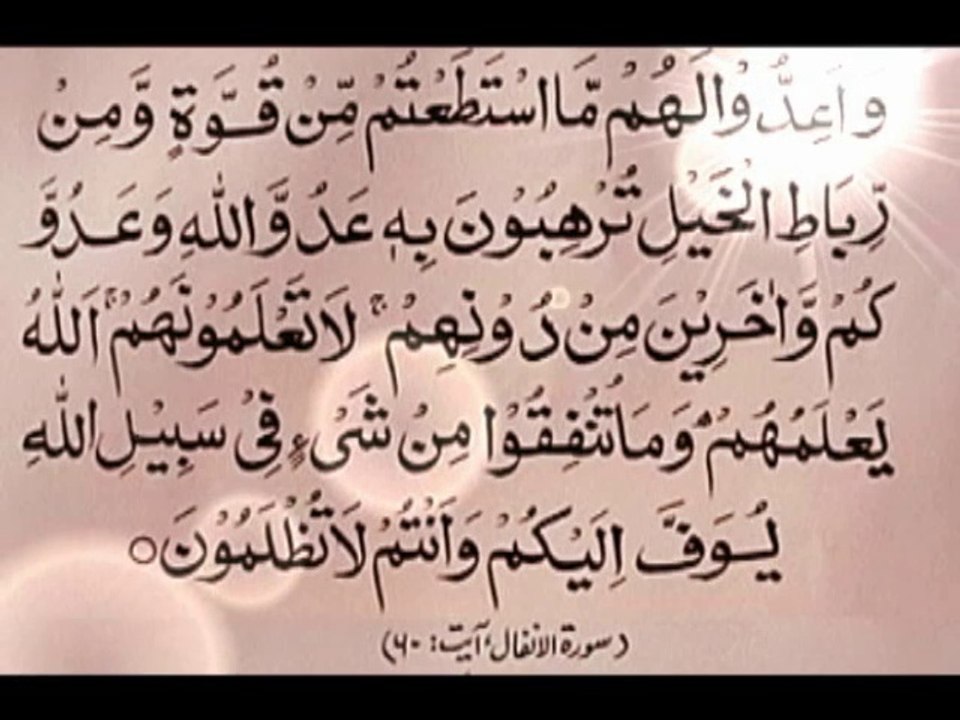 وَاَعِدُّوْا لَهُمْ مَّا اسْتَطَعْتُمْ مِّنْ قُوَّةٍ وَّمِنْ
رِّبَاطِ الْخَيْلِ تُرْهِبُوْنَ بِهٖ عَدُوَّ اللّٰهِ وَعَدُوَّ
كُمْ وَاٰخَرِيْنَ مِنْ دُوْنِهِمْ ۚ لَا تَعْلَمُوْنَهُمْ ۚ اَللّٰهُ
يَعْلَمُهُمْ ؕ وَمَا تُنْفِقُوْا مِنْ شَىْءٍ فِىْ سَبِيْلِ اللّٰهِ
يُوَفَّ اِلَيْكُمْ وَاَنْتُمْ لَا تُظْلَمُوْنَ ○
(سورۃ الانفال، آیت: ۶۰)